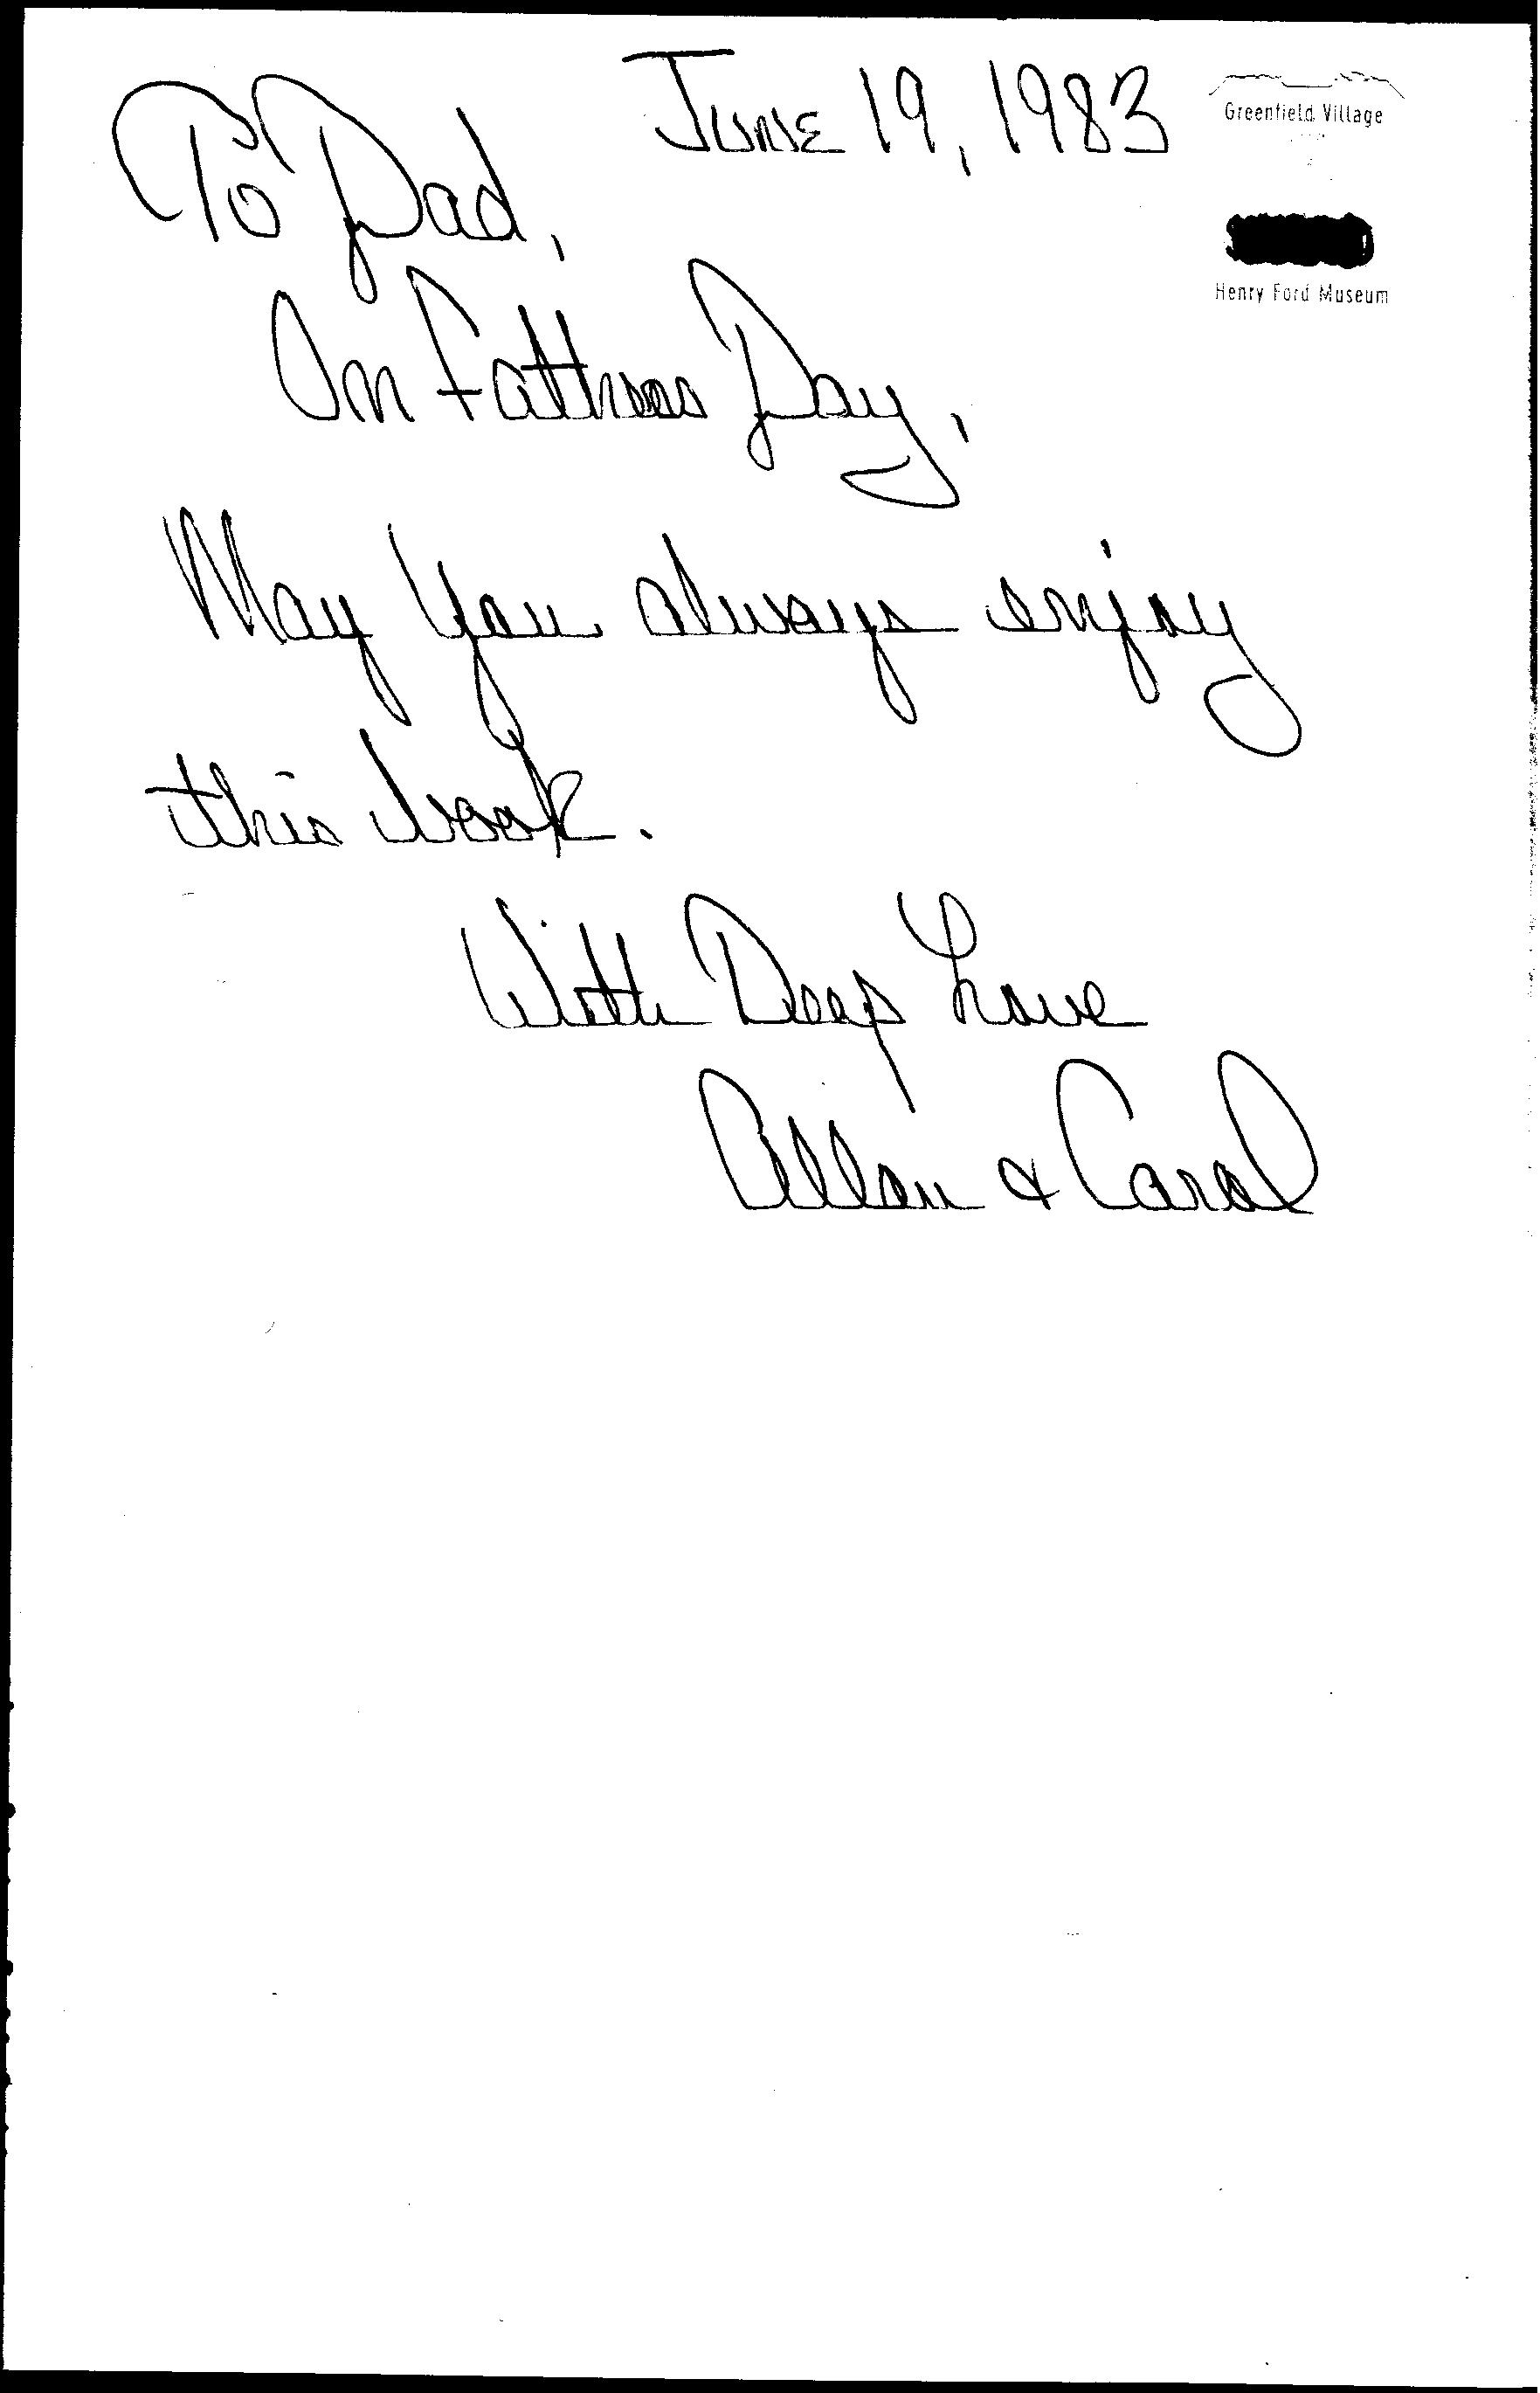 June 19, 1983
Greenfield Village
To Dad,
Henry Ford Museum
On Fathers Day,
May You always enjoy
this book.
With Deep Love
Allan & Carol